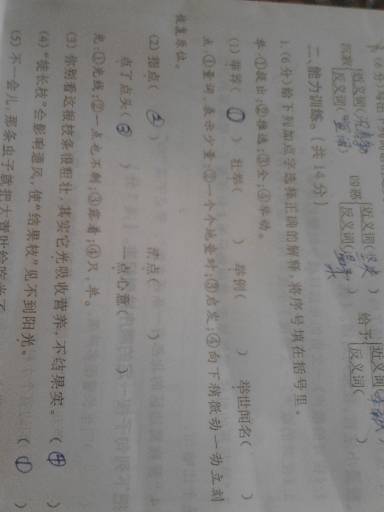 沉寂 近义词(
反义词(
凶恶 近义词(
反义词(
给予 近义词(
反义词( )
二、能力训练。(共14分)
1.(6分)给下列加点字选择正确的解释,将序号填在括号里。
举:①提出;②推选;③全;④举动。
(1)举荐(①) 壮举( ) 举例( ) 举世闻名( )
点:①量词,表示少量;②一个个地查对;③启发;④向下稍微动一动立刻
恢复原位。
(2)指点(③) 清点( )
点了点头(③) 一点心意( )
光:①光线;②一点也不剩;③露着;④只,单。
(3)你别看这根枝条很粗壮,其实它光吸收营养,不结果实。(④)
(4)“徒长枝”会影响通风,使“结果枝”见不到阳光。(①)
(5)不一会儿,那条虫子就把大青叶给吃光了